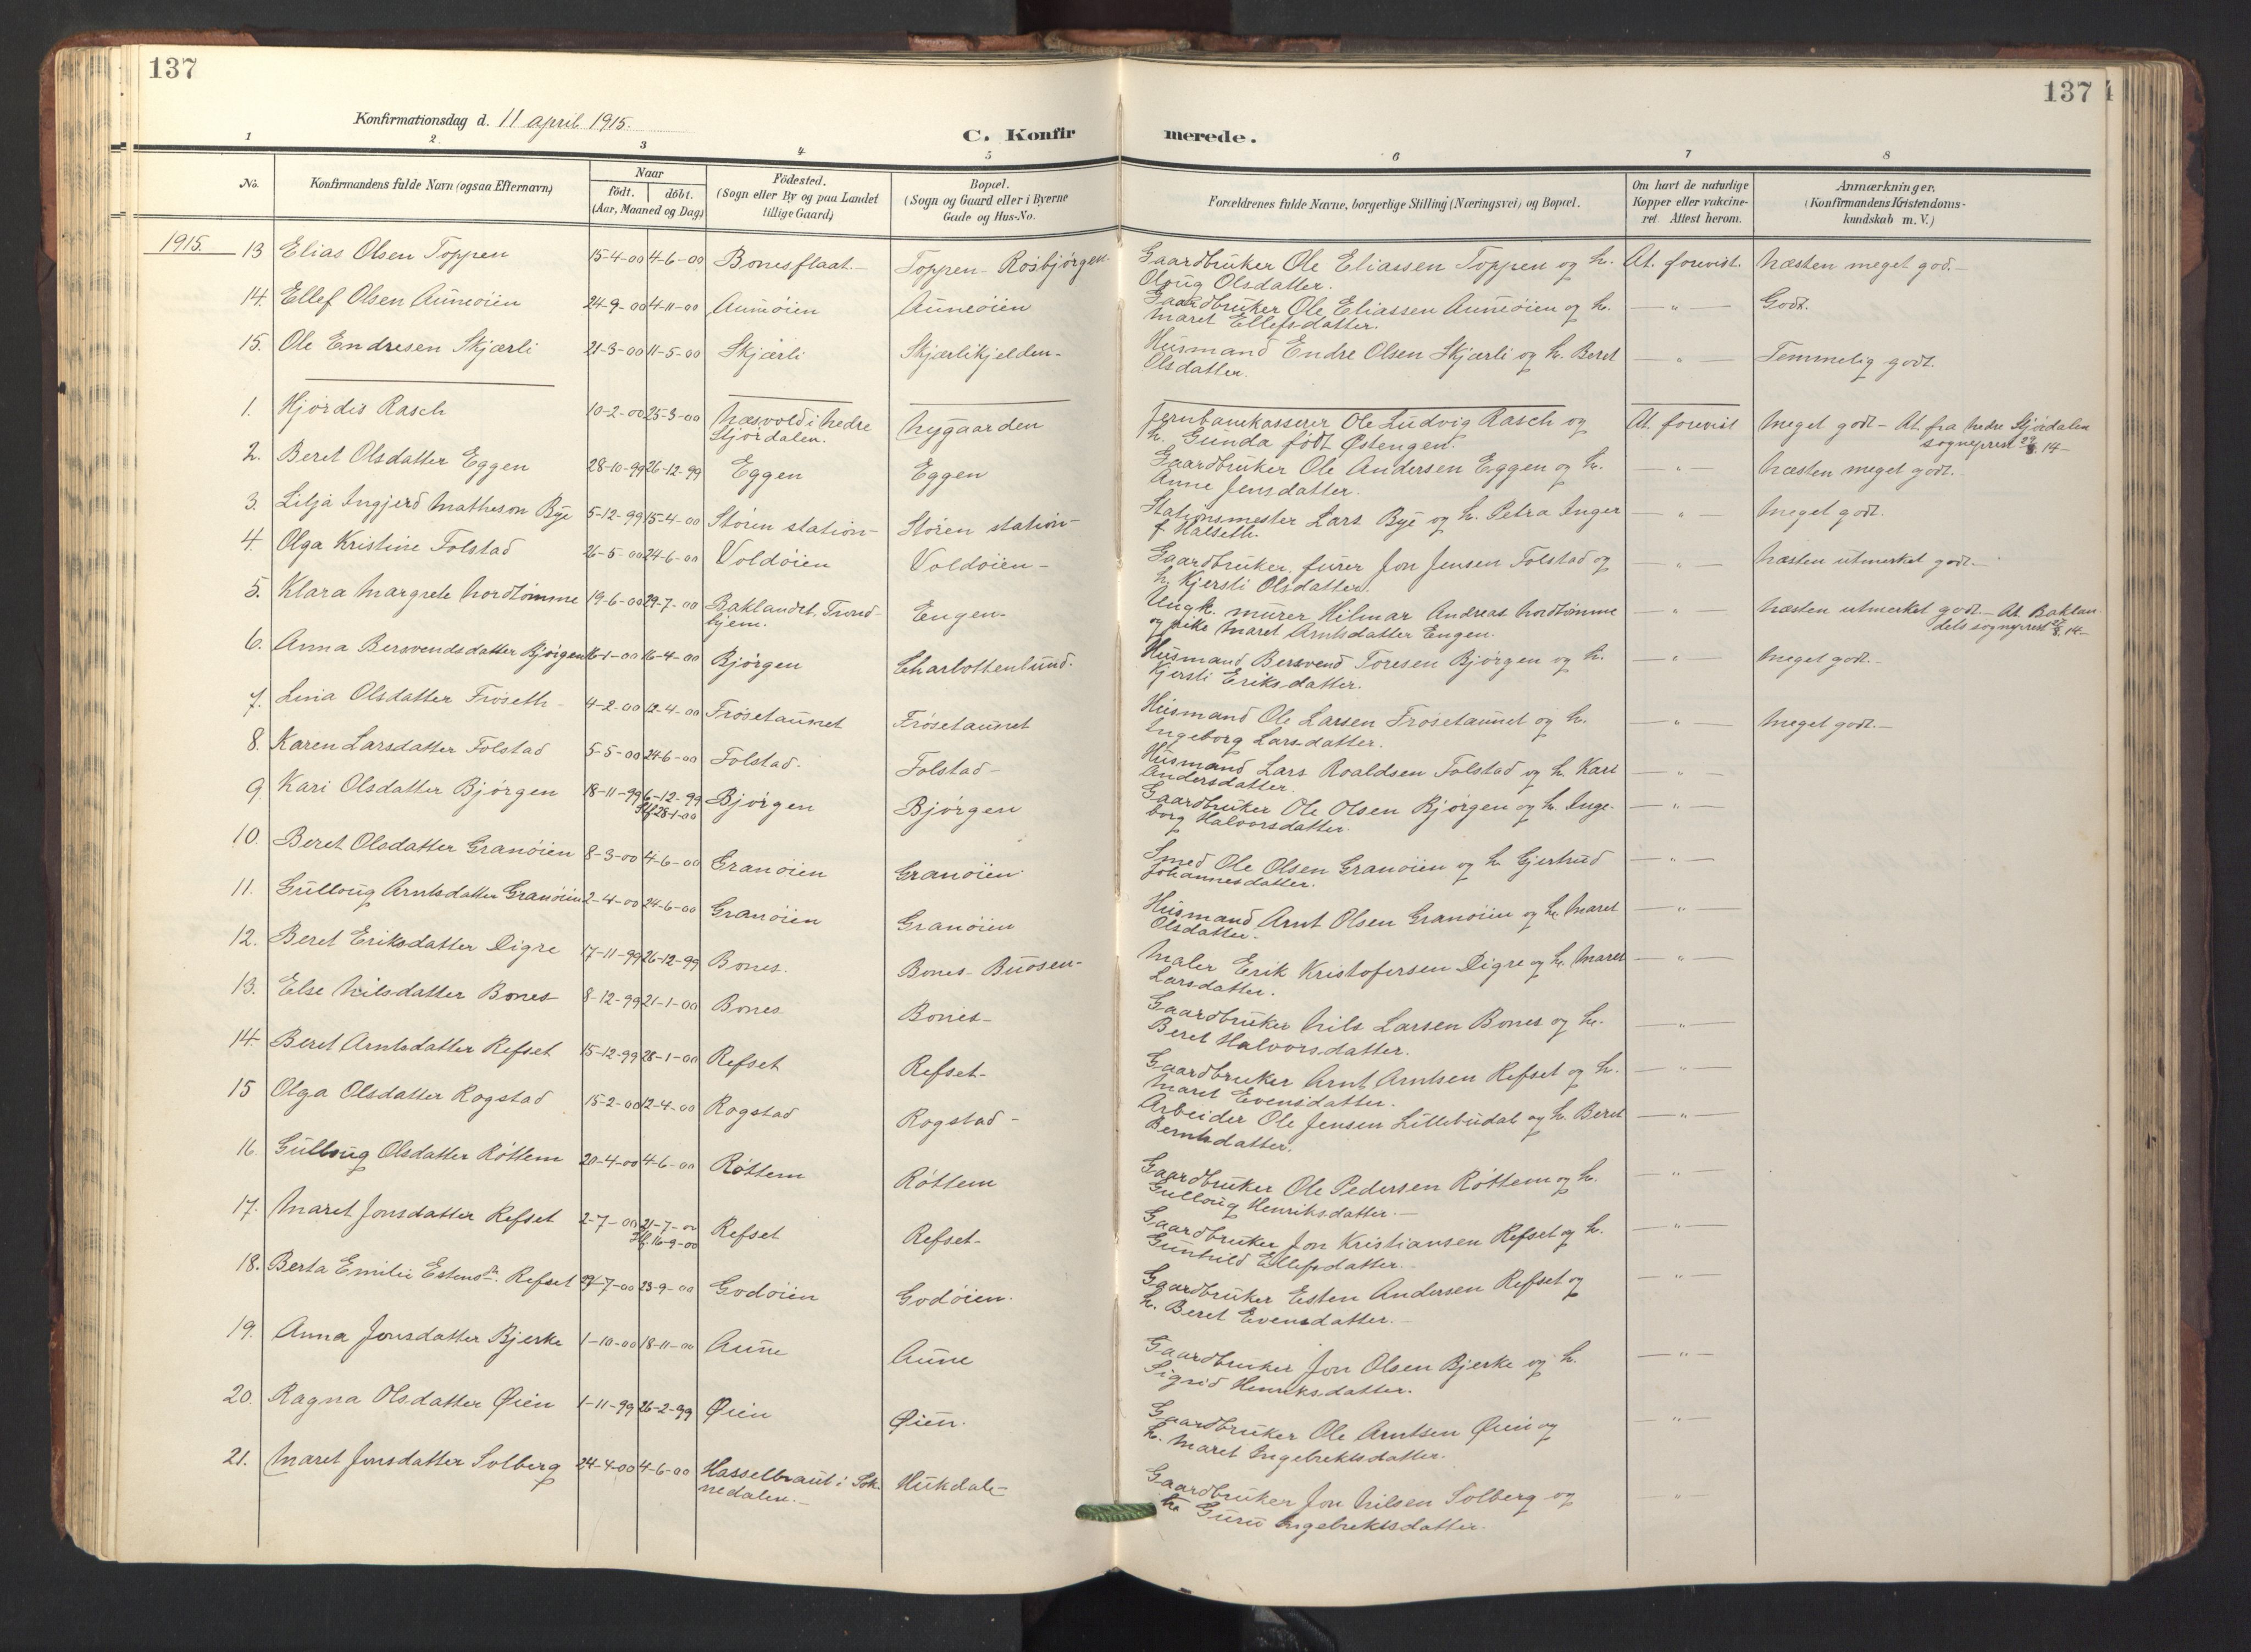 137
137
Konfirmationsdag d. 11 april 1915.
C. Konfirmerede.
1 2 3 4 5 6 7 8
No. Konfirmandens fulde Navn (ogsaa Efternavn) Naar födt. döbt. (Aar, Maaned og Dag) Födested. (Sogn eller By og paa Landet tillige Gaard) Bopæl. (Sogn og Gaard eller i Byerne Gade og Hus-No. Forældrenes fulde Navne, borgerlige Stilling (Næringsvei) og Bopæl. Om havt de naturlige Kopper eller vakcineret. Attest herom. Anmærkninger. (Konfirmandens Kristendomskundskab m. V.)
1915. 13 Elias Olsen Toppen 15-4-00 4-6-00 Bonesflaat.- Toppen - Rosbjørgen- Gaardbruker Ole Eliassen Toppen og h. At. forevist. Næsten meget god.-
Oloug Olsdatter.
14. Ellef Olsen Auneöien 24-9-00 4-11-00 Auneöien Auneöien Gaardbruker Ole Eliassen Auneöien og h. — " — Godt.
Maret Ellefsdatter.
15. Ole Endresen Skjærli 21-3-00 11-5-00 Skjærli Skjærlikjelden- Husmand Endre Olsen Skjærli og h. Beret — " — Temmelig godt.
Olsdatter.
1. Hjördis Rasch 10-2-00 25-3-00 Næsvold i Nedre Nygaarden Jernbanekasserer Ole Ludvig Rasch og At. forevist Meget godt - At. fra Nedre Stjördalen
Stjördalen. h. Gunda født Østengen. sogneprest 14-
2. Beret Olsdatter Eggen 28-10-99 26-12-99 Eggen Eggen Gaardbruker Ole Andersen Eggen og h. — " — Næsten meget godt.
Anne Jensdatter.
3. Lilja Ingjerd Matheson Bye 5-12-99 15-4-00 Stören station- Stören station- Stationsmester Lars Bye og h. Petra Inger — " — Meget godt.
f. Halseth.
4. Olga Kristine Folstad 26-5-00 24-6-00 Voldöien Voldöien - Gaardbruker, furer Jon Jensen Folstad og — " — Næsten utmerket godt.-
h. Kjersti Olsdatter.
5. Klara Margrete Nordtömme 19-6-00 29-7-00 Baklandet, Trond- Engen- Ungk. murer Hilmar Andreas Nordtömme — " — Næsten utmerket godt.- At. Baklan-
hjem. og pike Maret Arntsdatter Engen. dets sogneprest 14-
6. Anna Bersvendsdatter Bjørgen 16-1-00 16-4-00 Bjørgen Charlottenlund. Husmand Bersvend Toresen Bjørgen og h. — " — Meget godt.-
Kjersti Eriksdatter.
7. Lina Olsdatter Fröseth - 4-2-00 12-4-00 Frösetaunet Frösetaunet Husmand Ole Larsen Frösetaunet og h. — " — Meget godt.-
Ingeborg Larsdatter.
8. Karen Larsdatter Folstad 5-5-00 24-6-00 Folstad. Folstad- Husmand Lars Roaldsen Folstad og h. Kari — " —
Andersdatter.
9. Kari Olsdatter Bjørgen 18-11-99 6-12-99 Bjørgen Bjørgen Gaardbruker Ole Olsen Bjørgen og h. Inge- — " —
Stf 28-1-00 borg Halvorsdatter.
10. Beret Olsdatter Granöien 8-3-00 4-6-00 Granöien Granöien Smed Ole Olsen Granöien og h. Gjertrud — " —
Johannesdatter.
11. Gulloug Arntsdatter Granöien 2-4-00 24-6-00 Granöien Granöien Husmand Arnt Olsen Granöien og h. Maret — " —
Olsdatter.
12. Beret Eriksdatter Digre 17-11-99 26-12-99 Bones. Bones- Buosen- Maler Erik Kristofersen Digre og h. Maret — " —
Larsdatter.
13. Else Nilsdatter Bones 8-12-99 21-1-00 Bones Bones- Gaardbruker Nils Larsen Bones og h. — " —
Beret Halvorsdatter.
14. Beret Arntsdatter Refset 15-12-99 28-1-00 Refset Refset- Gaardbruker Arnt Arntsen Refset og h. — " —
Maret Evensdatter.
15 Olga Olsdatter Rogstad 15-2-00 12-4-00 Rogstad Rogstad - Arbeider Ole Jensen Lillebudal og h. Beret — " —
Berntsdatter.
16. Gulloug Olsdatter Röttem 20-4-00 4-6-00 Röttem Röttem Gaardbruker Ole Pedersen Röttem og h. — " —
Gulloug Henriksdatter.-
17. Maret Jonsdatter Refset 2-7-00 21-7-00 Refset Refset- Gaardbruker Jon Kristiansen Refset og h. — " —
Stf. 16-9-00 Gunhild Ellefsdatter.-
18. Berta Emilie Estensdr. Refset 27-7-00 23-9-00 Godöien Godöien. Gaardbruker Esten Andersen Refset og — " —
h. Beret Evensdatter.-
19. Anna Jonsdatter Bjerke 1-10-00 18-11-00 Aune Aune Gaardbruker Jon Olsen Bjerke og h. — " —
Sigrid Henriksdatter.
20. Ragna Olsdatter Øien 1-11-99 26-2-99 Øien Øien. Gaardbruker Ole Arntsen Øien og — " —
h. Maret Ingebrektsdatter.
21. Maret Jonsdatter Solberg 24-4-00 4-6-00 Hasselbraut i Sok- Hukdal- Gaardbruker Jon Nilsen Solberg og — " —
nedalen.- h. Guru Ingebrektsdatter.